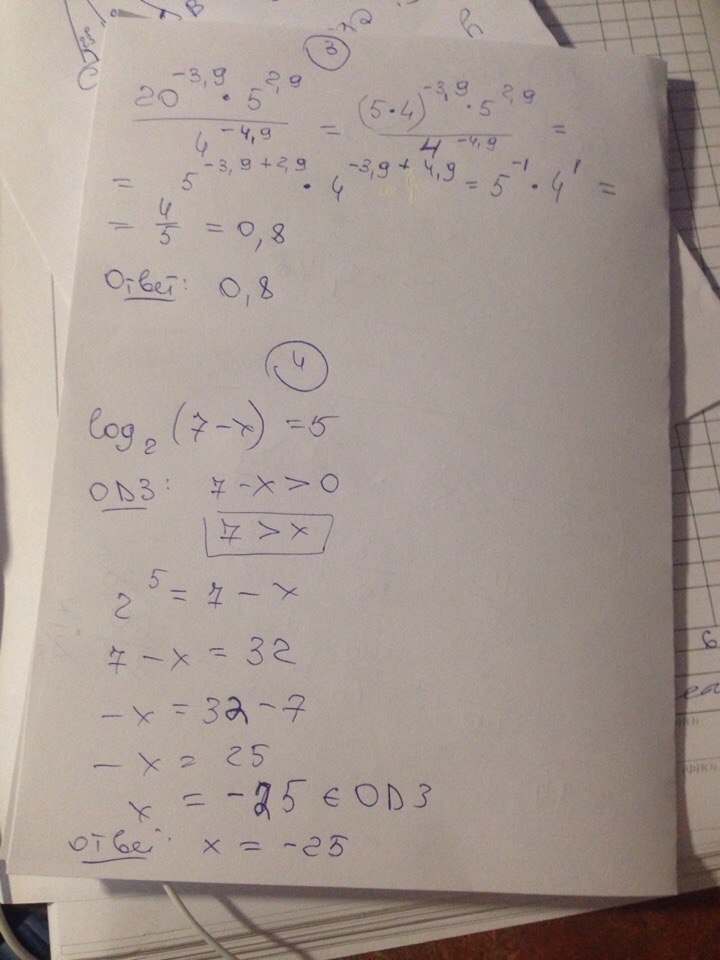 3
20^-3,9 · 5^2,9 / 4^-4,9 = (5·4)^-3,9 · 5^2,9 / 4^-4,9 =
= 5^-3,9+2,9 · 4^-3,9+4,9 = 5^-1 · 4^1 =
= 4/5 = 0,8
Ответ: 0,8
4
log₂(7-x) = 5
ОДЗ: 7-x>0
7 > x
2^5 = 7-x
7-x = 32
-x = 32-7
-x = 25
x = -25 ∈ ОДЗ
Ответ: x = -25